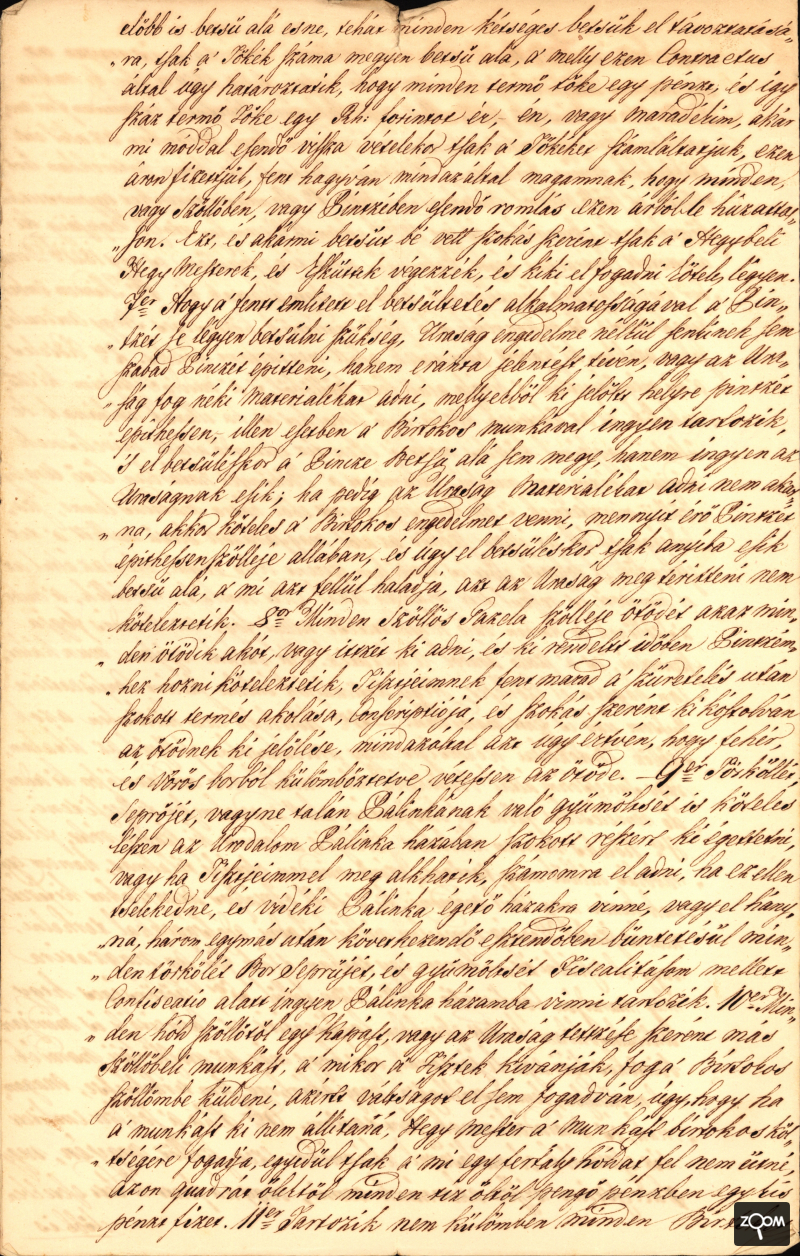 előbb is betsű alá esne, tehát minden kétséges betsűk el távoztatásá„
„ra, tsak a' Tőkék száma megyen betsű alá, a' melly ezen Contractus
által úgy határoztatik, hogy minden termő tőke egy pénzt, és így
száz termő Tőke egy Rh: forintot ér, – én, vagy maradékim, akár
mi móddal esendő vissza vételekor tsak a' Tőkéket számláltatjuk, ezen
áron fizettjük, fent hagyván mindazáltal magamnak, hogy minden,
vagy szőllőben, vagy Pintzében esendő romlás ezen árból le húzattas„
„son. Ezt, és akármi betsűt bé vett szokás szerént tsak a' Hegybéli
Hegy Mesterek, és Esküttek végezzék, és kiki el fogadni köteles légyen.
7er Hogy a' fentt említett el betsültetés alkalmatosságával a' Pin„
„tzét se légyen betsülni szükség, Uraság engedelme nélkül senkinek sem
szabad Pinczét építteni, hanem eránta jelentést tévén, vagy az Ura„
„ság fog néki Materiálékat adni, mellyekből ki jelölt helyre pintzét
épithessen, illen esetben a' Birtokos munkával ingyen tartozik,
's el betsüléskor a' Pincze betsű alá sem megy, hanem ingyen az
Uraságnak esik; ha pedig az Uraság Materiálékat adni nem akar„
„na, akkor köteles a' Birtokos engedelmet venni, mennyit érő Pintzét
épithessen szőlleje allában, és úgy el betsüléskor tsak anyiba esik
betsű alá, a' mi azt fellül haladja, azt az Uraság meg téritteni nem
köteleztetik. 8or Minden Szőllős Gazda szőlleje ötödét azaz min„
„den ötödik akót, vagy itzét ki adni, és ki rendelt időben Pintzém„
„hez hozni köteleztetik, Tisztjeimnek fent marad a' szüretelés után
szokott termés akolása, conscriptiója, és szokás szerent ki kóstolván
az ötödnek ki jelölése, mindazáltal azt úgy értvén, hogy fehér,
és vörös borból külömböztetve, vétessen az ötöde. – 9er Törköllét,
Seprőjét, vagyne talán Pálinkának való gyümöltsét is köteles
lészen az Uradalom Pálinka házában szokott részért ki égettetni,
vagy ha Tisztjeimmel meg alkhatik, számomra el adni, ha ez ellen
tselekedne, és vidéki Pálinka égető házakra vinné, vagy el hány„
„ná, három egymás után következendő esztendőben büntetésül min„
„den törkölét Bor Seprűjét, és gyümöltsét Fiscalitásom mellett
Confiscatio alatt ingyen Pálinka házamba vinni tartozik. 10er Min„
„den hód szőllőtől egy Kapást, vagy az Uraság tettzése szerent más
szőllőbeli munkást, a' mikor a' Tisztek kivánják, fog a' Birtokos
szőllőmbe küldeni, azértt váltságot el sem fogadván, úgy, hogy ha
a' munkást ki nem állitaná, Hegy Mester a' munkást birtokos köl„
„tségére fogadja, egyedül tsak a' mi egy fertály hódat fel nem ütné,
azon quadrát ölektől minden tiz öltől pengő pénzben egy
pénzt fizet. 11er Tartozik nem külömben minden